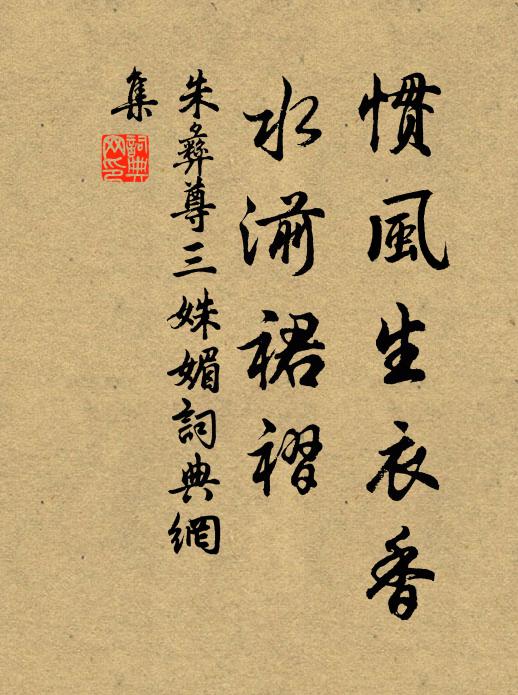 惯風生衣香
水湔裙褶
朱彝尊三姝媚詞典網
集
詞典網印